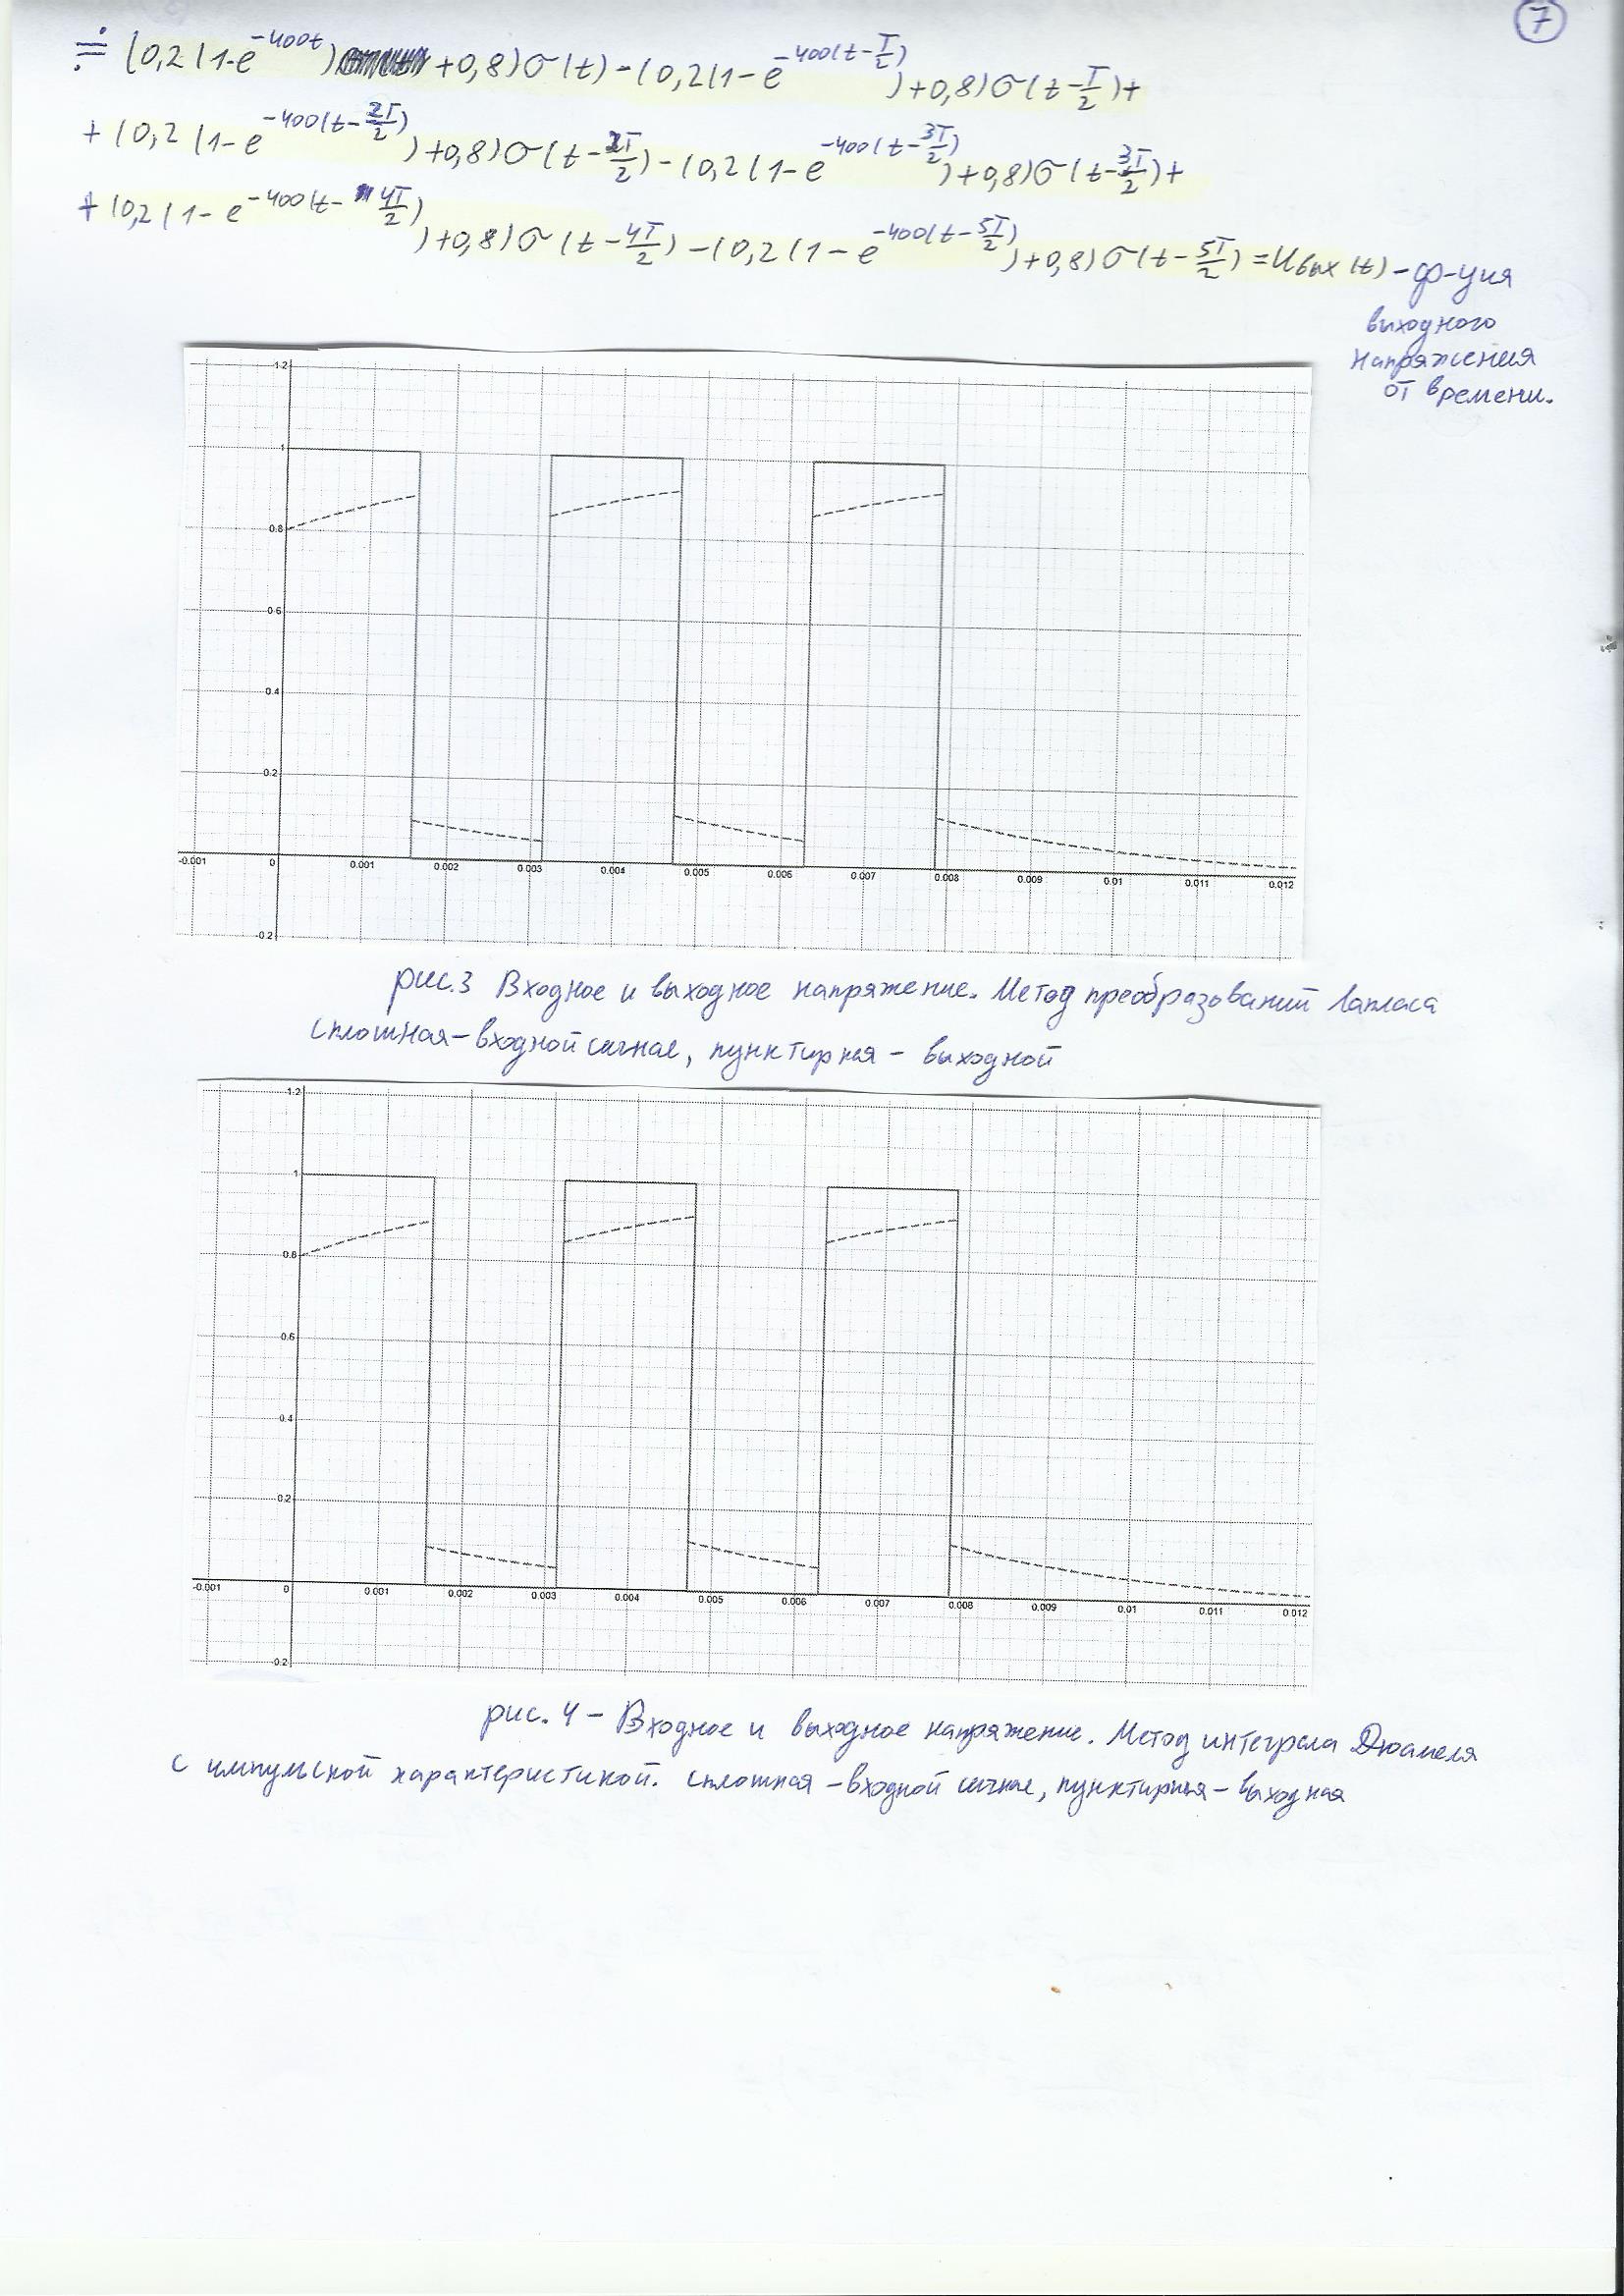 7
≓ (0,2(1-e^{-400t})+0,8)σ(t)-(0,2(1-e^{-400(t-T/2)})+0,8)σ(t-T/2)+
+(0,2(1-e^{-400(t-2T/2)})+0,8)σ(t-2T/2)-(0,2(1-e^{-400(t-3T/2)})+0,8)σ(t-3T/2)+
+(0,2(1-e^{-400(t-4T/2)})+0,8)σ(t-4T/2)-(0,2(1-e^{-400(t-5T/2)})+0,8)σ(t-5T/2)=Uвых(t)-ф-ция
выходного
напряжения
от времени.
1.2
1
0.8
0.6
0.4
0.2
-0.001 0 0.001 0.002 0.003 0.004 0.005 0.006 0.007 0.008 0.009 0.01 0.011 0.012
-0.2
рис.3 Входное и выходное напряжение. Метод преобразований Лапласа
сплошная-входной сигнал, пунктирная - выходной
1.2
1
0.8
0.6
0.4
0.2
-0.001 0 0.001 0.002 0.003 0.004 0.005 0.006 0.007 0.008 0.009 0.01 0.011 0.012
-0.2
рис. 4 - Входное и выходное напряжение. Метод интеграла Дюамеля
с импульсной характеристикой. сплошная -входной сигнал, пунктирная- выходная